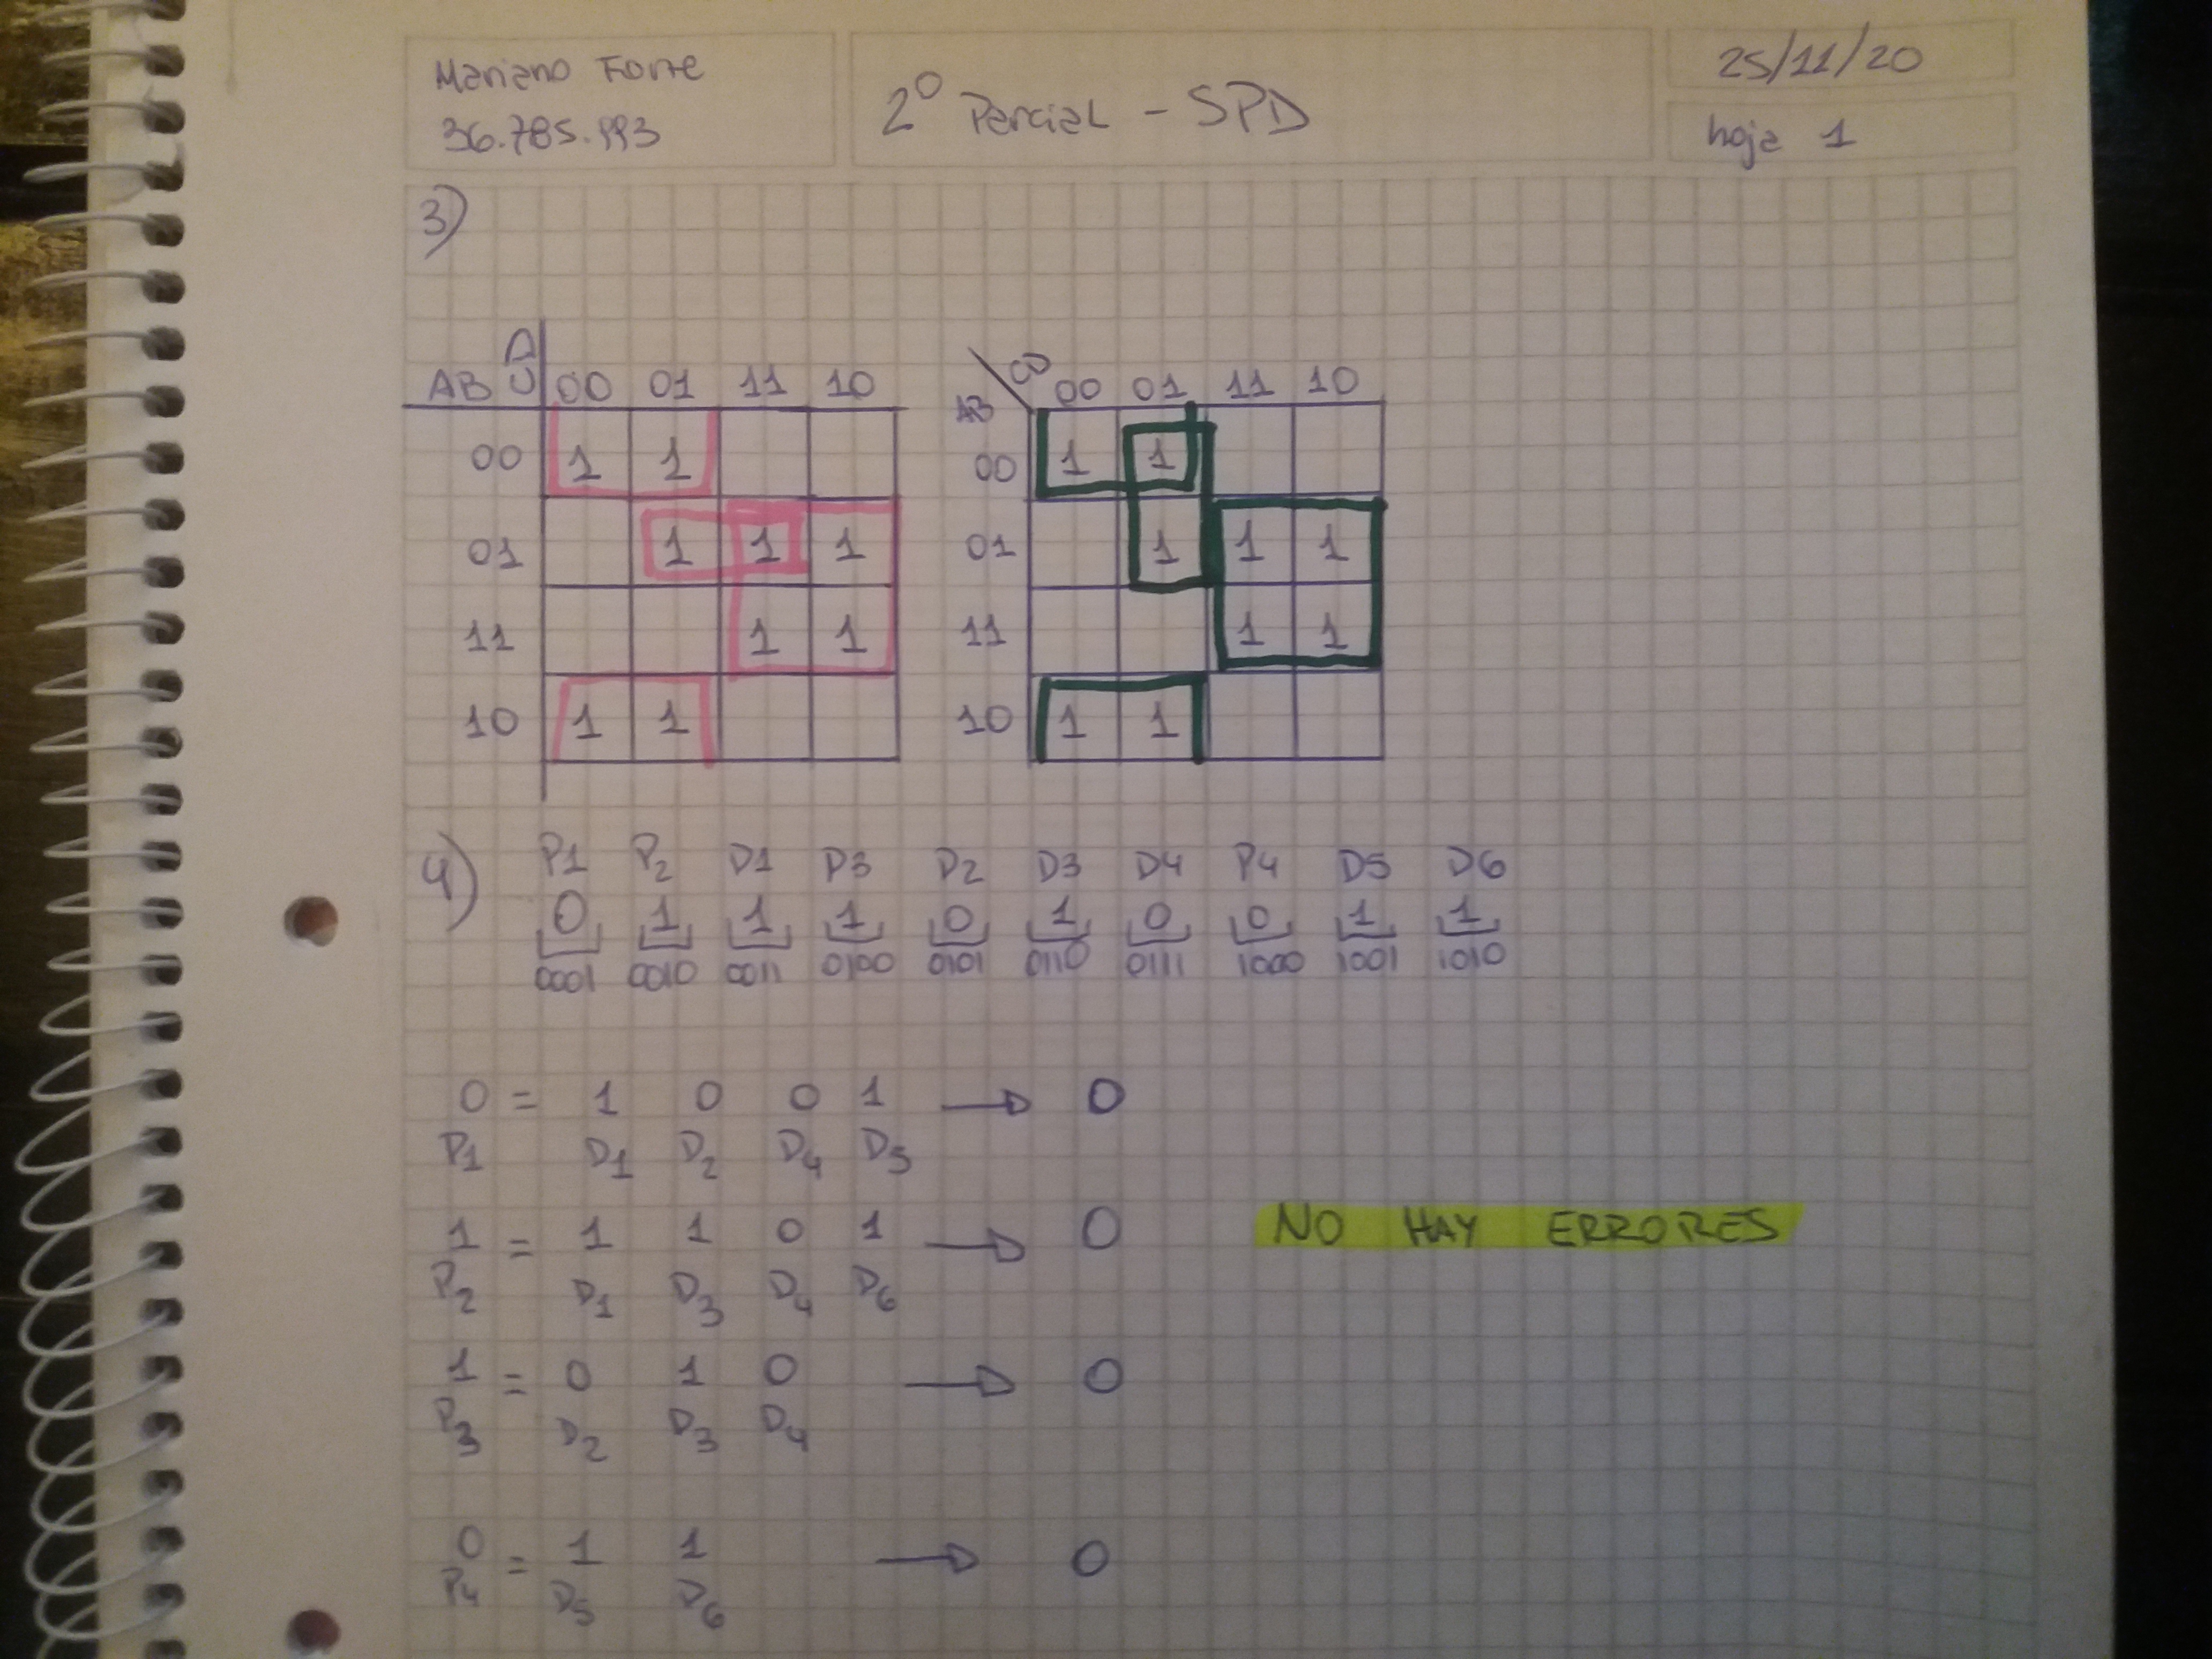 Mariano Forte
36.785.993
2° Parcial - SPD
25/11/20
hoja 1
3)
AB CD 00 01 11 10
00 1 1
01 1 1 1
11 1 1
10 1 1
AB CD 00 01 11 10
00 1 1
01 1 1 1
11 1 1
10 1 1
4) P1 P2 D1 D3 D2 D3 D4 P4 D5 D6
0 1 1 1 0 1 0 0 1 1
0001 0010 0011 0100 0101 0110 0111 1000 1001 1010
0 = 1 0 0 1 → 0
P1 D1 D2 D4 D5
1 = 1 1 0 1 → 0 NO HAY ERRORES
P2 D1 D3 D4 D6
1 = 0 1 0 → 0
P3 D2 D3 D4
0 = 1 1 → 0
P4 D5 D6